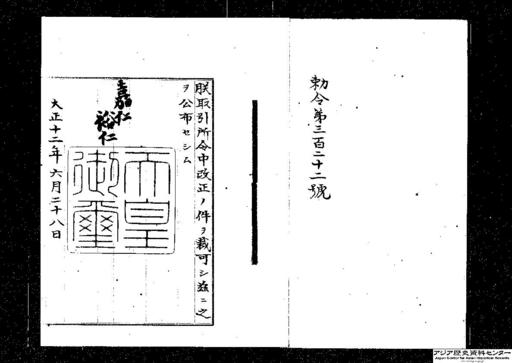 勅令第三百二十二號
朕取引所令中改正ノ件ヲ裁可シ茲ニ之
ヲ公布セシム
嘉仁
裕仁
天皇
御璽
大正十二年六月二十八日
アジア歴史資料センター
Japan Center for Asian Historical Records